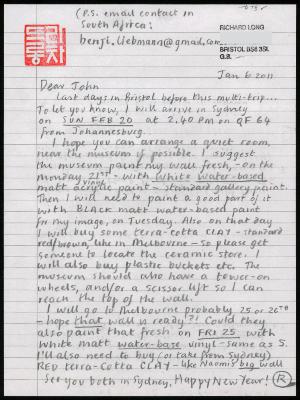 (P.S. email contact in
South Africa:
benji.liebmann@gmail.com
RICHARD LONG
BRISTOL BS8 3SL
G.B.
Jan 6 2011
Dear John
Last days in Bristol before this multi-trip...
To let you know, I will arrive in Sydney
on SUN FEB 20 at 2.40 PM on QF 64
from Johannesburg.
I hope you can arrange a quiet room,
near the museum if possible. I suggest
the museum paint my wall fresh, on the
Monday 21ST - with white water-based
vinyl
matt acrylic paint - standard gallery paint.
Then I will need to paint a good part of it
with BLACK matt water-based paint
for my image, on Tuesday. Also on that day
I will buy some terra-cotta CLAY - standard
red/brown, like in Melbourne - so please get
someone to locate the ceramic store. I
will also buy plastic buckets etc. The
museum should also have a tower-on
wheels, and/or a scissor lift so I can
reach the top of the wall.
I will go to Melbourne probably 25 or 26TH
- hope that wall is ready?! Could they
also paint that fresh on FRI 25 with
white matt water-base vinyl - same as S.
I'll also need to buy (or take from Sydney)
RED terra-cotta CLAY - like Naomi's big wall
See you both in Sydney, Happy New Year! R